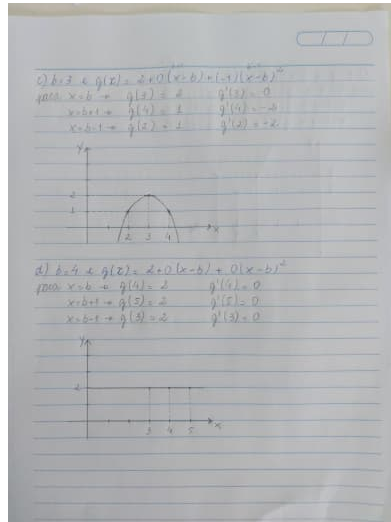 c) b=3 e g(x) = 2+0(x-b)+(-1)(x-b)²
para x=b → g(3) = 2 g'(3) = 0
x=b+1 → g(4) = 1 g'(4) = -2
x=b-1 → g(2) = 1 g'(2) = -2
y
2
1
2 3 4 x
d) b=4 e g(x) = 2+0(x-b) + 0(x-b)²
para x=b → g(4) = 2 g'(4) = 0
x=b+1 → g(5) = 2 g'(5) = 0
x=b-1 → g(3) = 2 g'(3) = 0
y
2
3 4 5 x